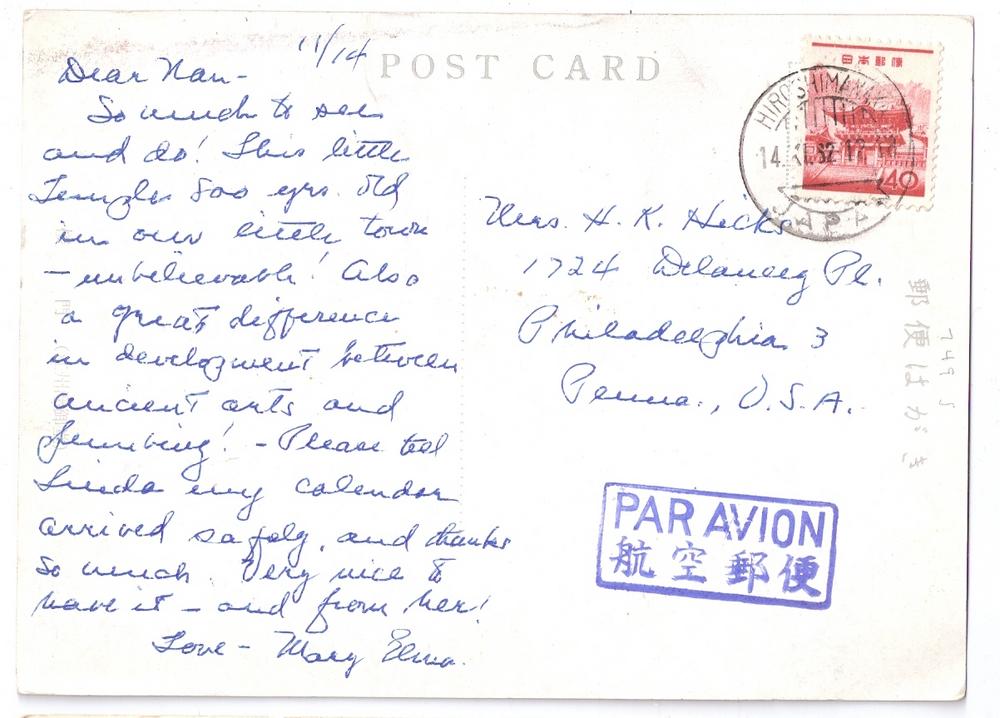 11/14
POST CARD
Dear Nan-
So much to see
and do! This little
Temple 800 yrs. old
in our little town
- unbelievable! Also
a great difference
in development between
ancient arts and
plumbing! - Please tell
Linda my calendar
arrived safely, and thanks
so much. Very nice to
have it - and from her!
Love - Mary Elma.
日本郵便
40
HIROSHIMA
14. 62
JAPAN
Mrs. H. K. Hicks
1724 Delancey Pl.
Philadelphia 3
Penna., U.S.A.
郵便はがき
749
PAR AVION
航空郵便